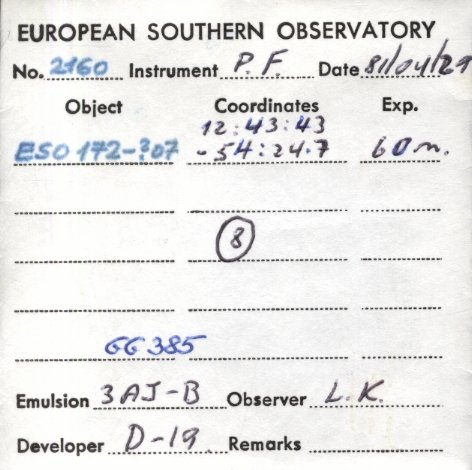 EUROPEAN SOUTHERN OBSERVATORY
No. 2160 Instrument P.F. Date 81/04/29
Object Coordinates Exp.
12:43:43
ESO 172-?07 -54:24.7 60m.
8
GG 385
Emulsion 3AJ-B Observer L.K.
Developer D-19 Remarks